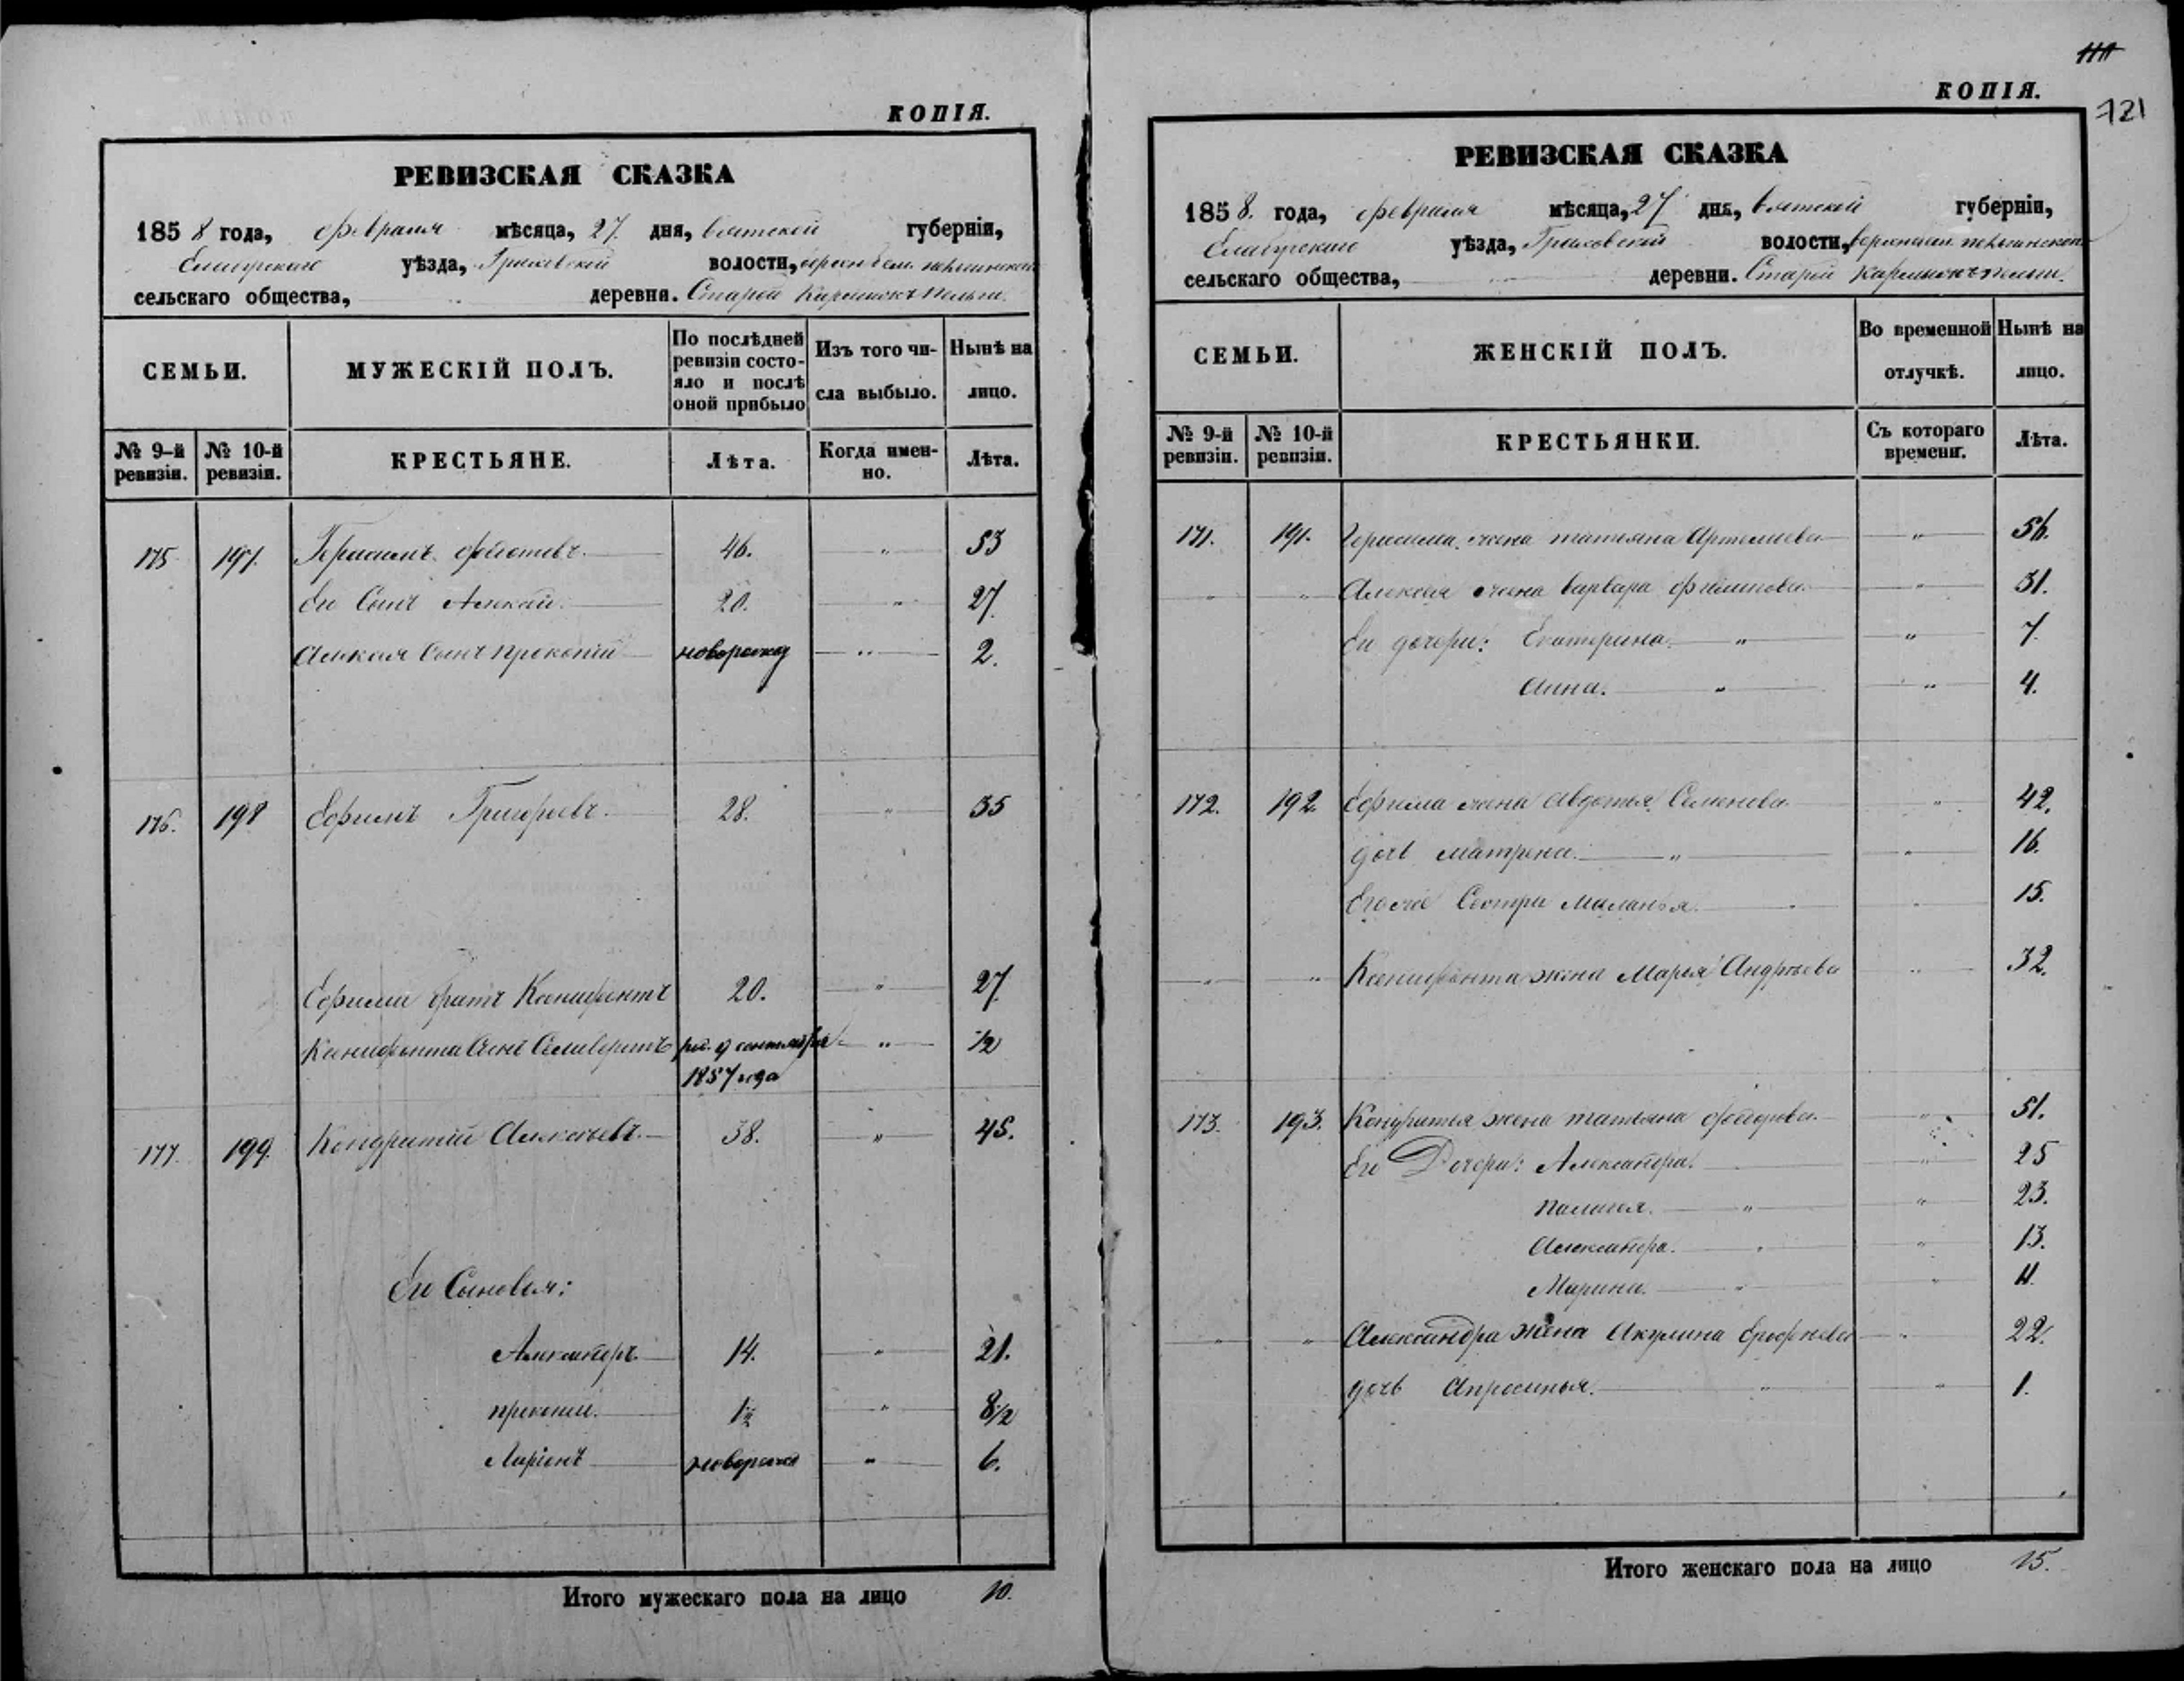 КОПІЯ.
РЕВИЗСКАЯ СКАЗКА
1858 года, февраля мѣсяца, 27. дня, вятской губерніи,
Елабужскаго уѣзда, Граховской волости,
сельскаго общества, деревни. Старой
СЕМЬИ. МУЖЕСКІЙ ПОЛЪ. По послѣдней ревизіи состояло и послѣ оной прибыло Изъ того числа выбыло. Нынѣ на лицо.
№ 9-й ревизіи. № 10-й ревизіи. КРЕСТЬЯНЕ. Лѣта. Когда именно. Лѣта.
175 197. Герасимъ федотовъ. 46. " 53
Его Сынъ Алексей. 20. " 27.
Алексея Сынъ прокопій новорожд " 2.
176. 198 Ефимъ Григорьевъ. 28. " 35
Ефима братъ Ксенофонтъ 20. " 27
Ксенофонта Сынъ Селиверстъ род. 9 сентября " 1/2
1857 года
177. 199. Кондратій Алексеевъ. 38. " 45.
Его Сыновья:
Александръ. 14. " 21.
прокопій. 1½ " 8½
Ларіонъ новорожд " 6.
Итого мужескаго пола на лицо 10.
КОПІЯ.
121
РЕВИЗСКАЯ СКАЗКА
1858. года, февраля мѣсяца, 27 дня, вятской губерніи,
Елабужскаго уѣзда, Граховской волости,
сельскаго общества, деревни. Старой
СЕМЬИ. ЖЕНСКІЙ ПОЛЪ. Во временной отлучкѣ. Нынѣ на лицо.
№ 9-й ревизіи. № 10-й ревизіи. КРЕСТЬЯНКИ. Съ котораго времени. Лѣта.
171. 191. Герасима жена татьяна Артемьева " 56.
" " Алексея жена варвара филипова. " 31.
Ег дочери: Екатерина. " " 7.
Анна. " " 4.
172. 192. Ефима жена Авдотья Семенова " 42.
дочь матрена. " " 16.
Егоже Сестра Маланья. " 15.
" " Ксенофонта жена Марья Андреева " 32.
173. 193. Кондратья жена татьяна федорова. " 51.
Его Дочери: Александра. " 25
палагея. " " 23.
Александра. " " 13.
Марина. " " 11.
" " Александра жена Акулина Ерофеева " 22.
дочь Апросинья. " " 1.
Итого женскаго пола на лицо 15.